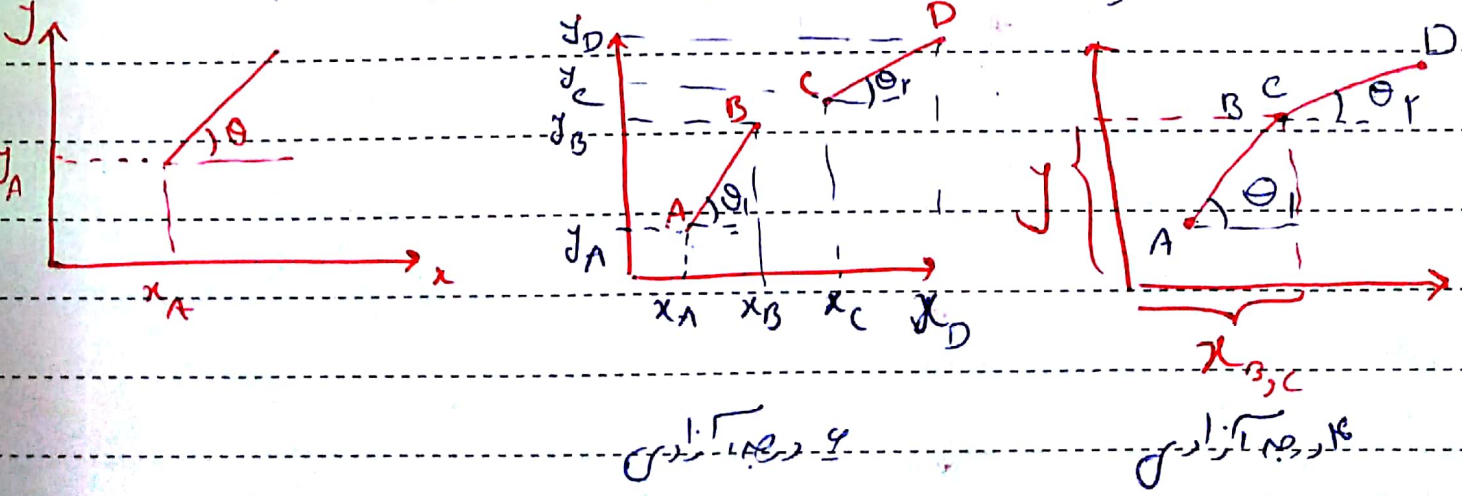 y
θ
y_A
x_A
x
y_D
y_C
y_B
y_A
D
C
θ۲
B
A
θ۱
x_A x_B x_C x_D
۶ درجه آزادی
D
B C
θ۲
θ۱
A
y
x_B,C
۴ درجه آزادی